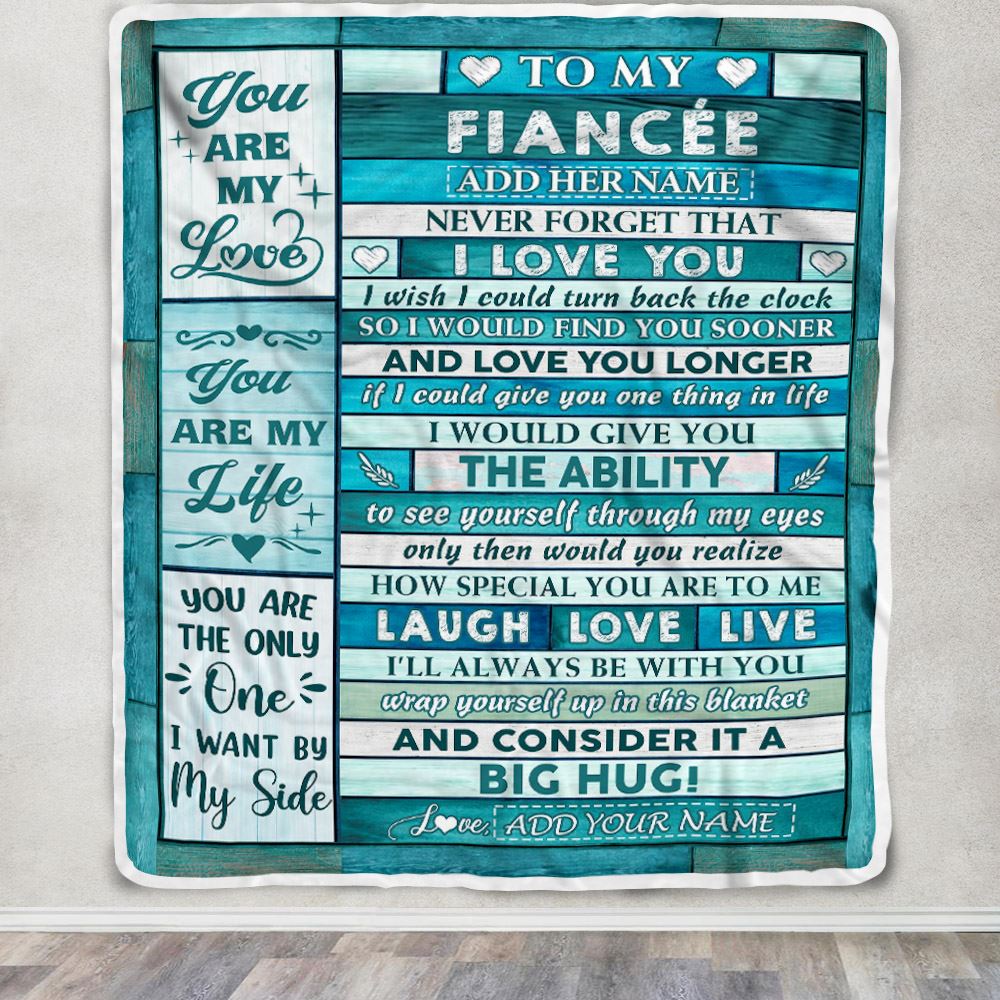 You
ARE
MY
Love
You
ARE MY
Life
YOU ARE
THE ONLY
One
I WANT BY
My Side
TO MY
FIANCÉE
ADD HER NAME
NEVER FORGET THAT
I LOVE YOU
I wish I could turn back the clock
SO I WOULD FIND YOU SOONER
AND LOVE YOU LONGER
if I could give you one thing in life
I WOULD GIVE YOU
THE ABILITY
to see yourself through my eyes
only then would you realize
HOW SPECIAL YOU ARE TO ME
LAUGH LOVE LIVE
I'LL ALWAYS BE WITH YOU
wrap yourself up in this blanket
AND CONSIDER IT A
BIG HUG!
Love, ADD YOUR NAME